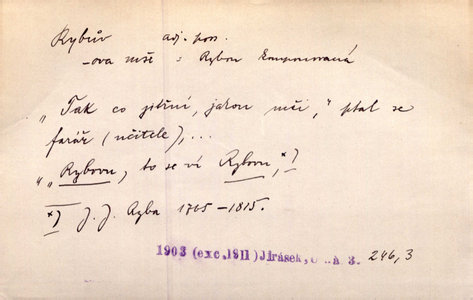 Rybův adj. poss.
-ova mše : Rybou komponovaná
„Tak co jitřní, jakou mši," ptal se
farář (učitele), ...
„„Rybovu, to se ví Rybovu,ˣ)
ˣ) J. J. Ryba 1765-1815.
1903 (exc. 1911) Jirásek, U nás 3. 246,3